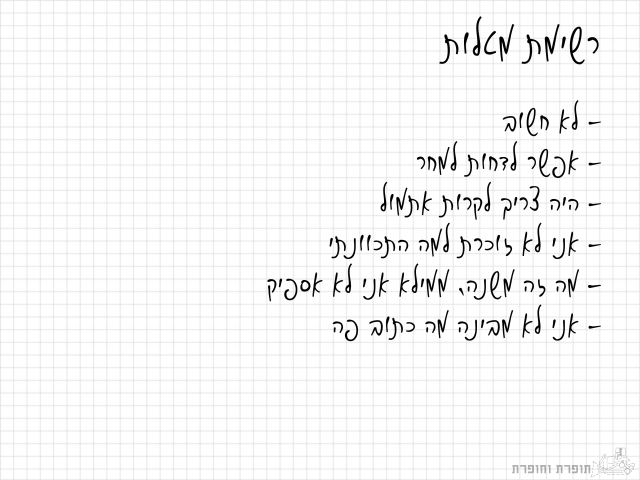 רשימת מטלות
- לא חשוב
- אפשר לדחות למחר
- היה צריך לקרות אתמול
- אני לא זוכרת למה התכוונתי
- מה זה משנה, ממילא אני לא אספיק
- אני לא מבינה מה כתוב פה
תופרת וחופרת